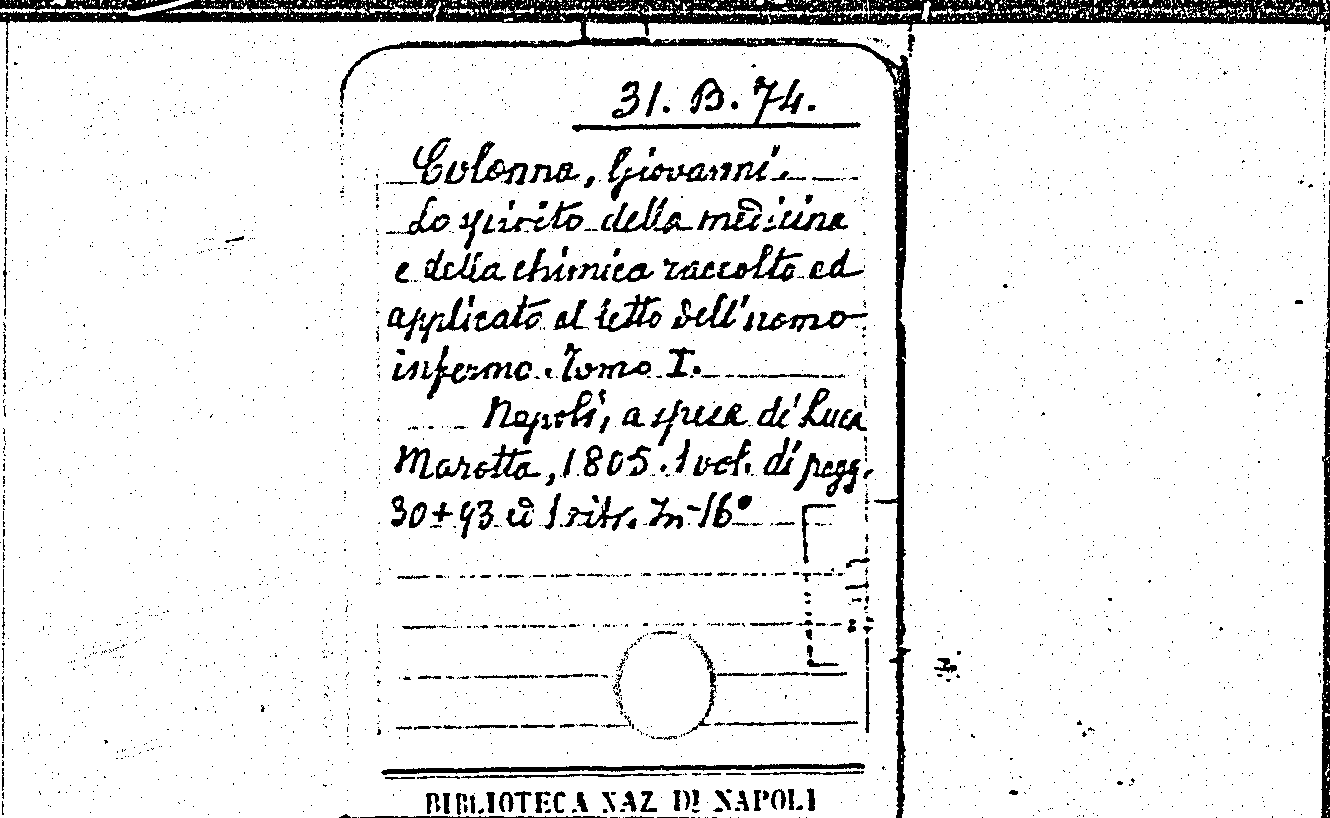 31. B. 74.
Colonna, Giovanni.
Lo spirito della medicina
e della chimica raccolto ed
applicato al letto dell'uomo
infermo. Tomo I.
Napoli, a spese di Luca
Marotta, 1805. 1 vol. di pagg.
30+93 ed 1 ritr. In-16°
BIBLIOTECA NAZ. DI NAPOLI